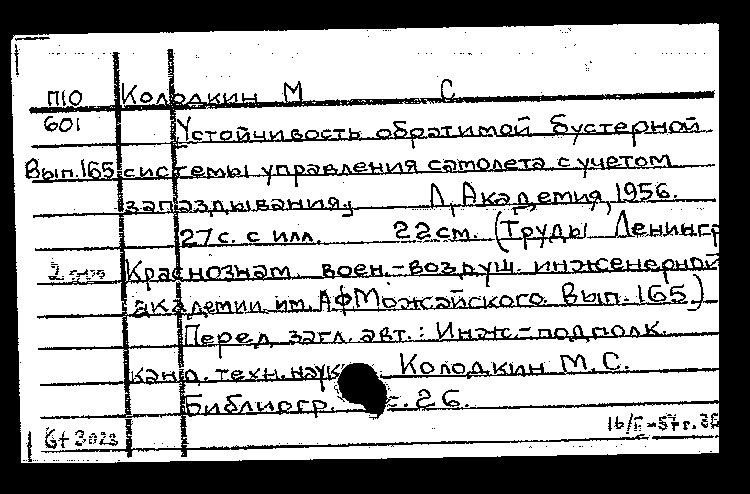 П10 Колодкин М С
601 Устойчивость обратимой бустерной
Вып.165 системы управления самолета с учетом
запаздывания, Л, Академия, 1956.
27с. с илл. 22см. (Труды Ленингр
Краснознам. воен.-воздуш. инженерной
академии им. АФМожайского. Вып. 165.)
Перед загл. авт.: Инж.-подполк.
канд. техн. наук Колодкин М. С.
Библиогр. с. 26.
16/II-57г.